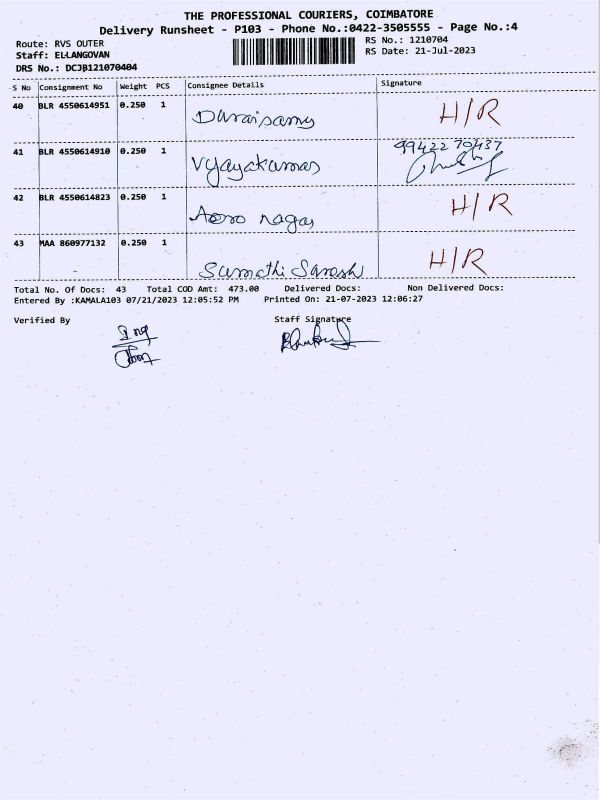 THE PROFESSIONAL COURIERS, COIMBATORE
Delivery Runsheet - P103 - Phone No.:0422-3505555 - Page No.:4
Route: RVS OUTER
RS No.: 1210704
Staff: ELLANGOVAN
RS Date: 21-Jul-2023
DRS No.: DCJB121070404
S No Consignment No Weight PCS Consignee Details Signature
40 BLR 4550614951 0.250 1 Duraisamy H/R
41 BLR 4550614910 0.250 1 Vijayakumar 99422 70437
42 BLR 4550614823 0.250 1 nagar H/R
43 MAA 860977132 0.250 1 Sumathi H/R
Total No. Of Docs: 43 Total COD Amt: 473.00 Delivered Docs: Non Delivered Docs:
Entered By :KAMALA103 07/21/2023 12:05:52 PM Printed On: 21-07-2023 12:06:27
Verified By Staff Signature